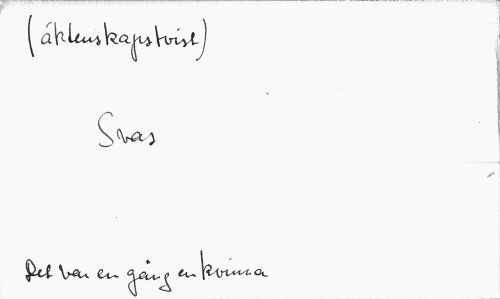 (äktenskapstvist)
Svas
Det var en gång en kvinna